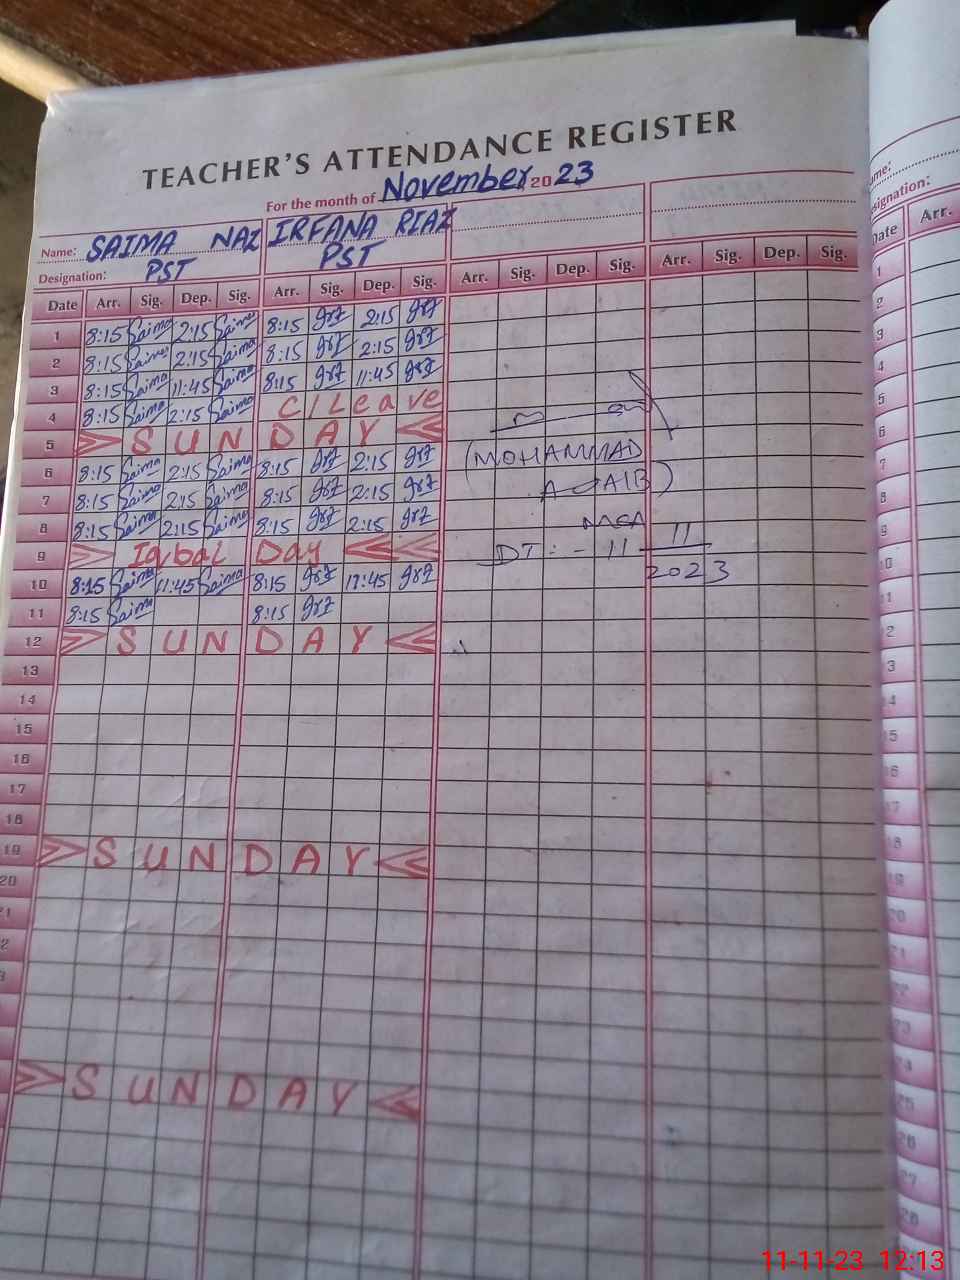 TEACHER'S ATTENDANCE REGISTER
For the month of November 2023
Name: SAIMA NAZ IRFANA RIAZ
Designation: PST PST
Date Arr. Sig. Dep. Sig. Arr. Sig. Dep. Sig. Arr. Sig. Dep. Sig. Arr. Sig. Dep. Sig.
1 8:15 Saima 2:15 Saima 8:15 2:15
2 8:15 Saima 2:15 Saima 8:15 2:15
3 8:15 Saima 11:45 Saima 8:15 11:45
4 8:15 Saima 2:15 Saima C/Leave
5 SUNDAY
6 8:15 Saima 2:15 Saima 8:15 2:15
7 8:15 Saima 2:15 Saima 8:15 2:15
8 8:15 Saima 2:15 Saima 8:15 2:15
9 Iqbal Day
10 8:15 Saima 11:45 Saima 8:15 11:45
11 8:15 Saima 8:15
12 SUNDAY
13
14
15
16
17
18
19 SUNDAY
20
SUNDAY
(MOHAMMAD
DT:- 11 11
2023
Designation:
Date Arr.
1
2
3
4
5
6
7
8
9
10
11-11-23 12:13